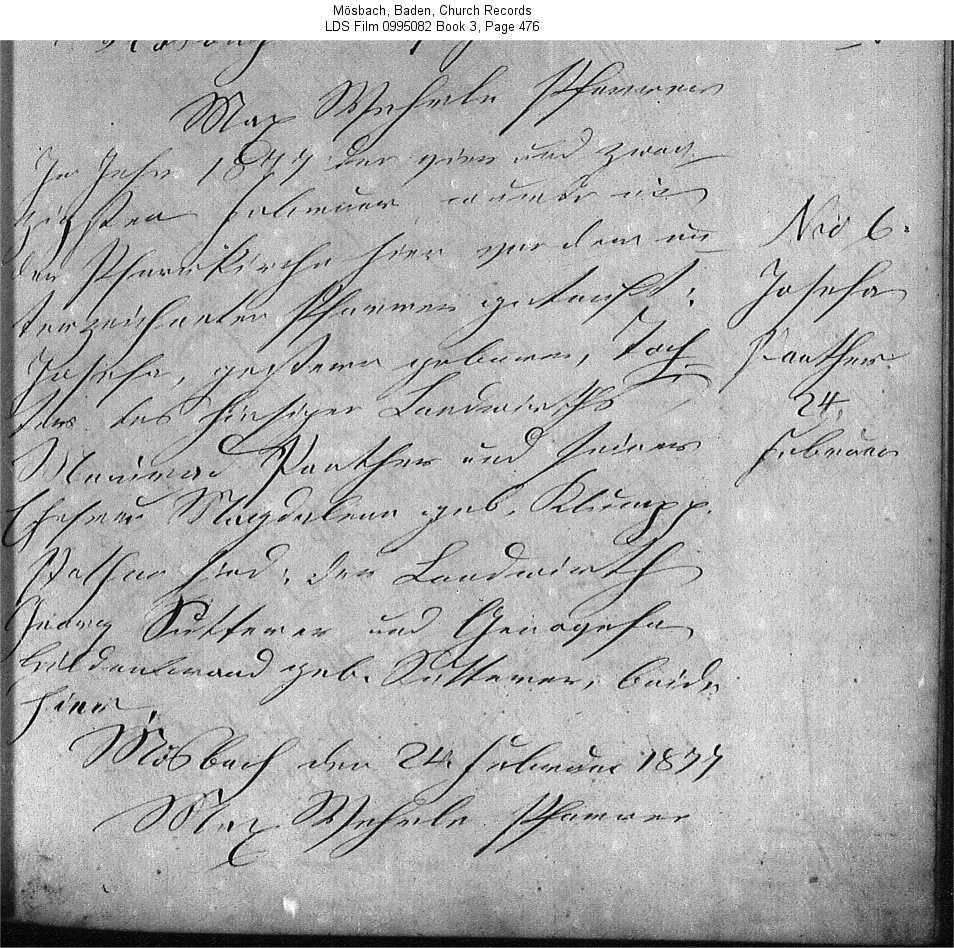 Mösbach, Baden, Church Records
LDS Film 0995082 Book 3, Page 476
Max Wehrle Pfarrer
Im Jahr 1877 den vier und zwan
zigsten Februar wurde in
der Pfarrkirche hier von dem un
terzeichneten Pfarrer getauft:
Josefa, gestern geboren, Toch
ter des hiesigen Landwirths
Panther und seiner
Ehefrau Magdalena geb. Klumpp.
Pathen sind: der Landwirth
Georg Sutterer und Genovefa
Hildenbrand geb. Sutterer, beide
hier.
Mösbach den 24. Februar 1877
Max Wehrle Pfarrer
Nro 6.
Josefa
Panther
24.
Februar